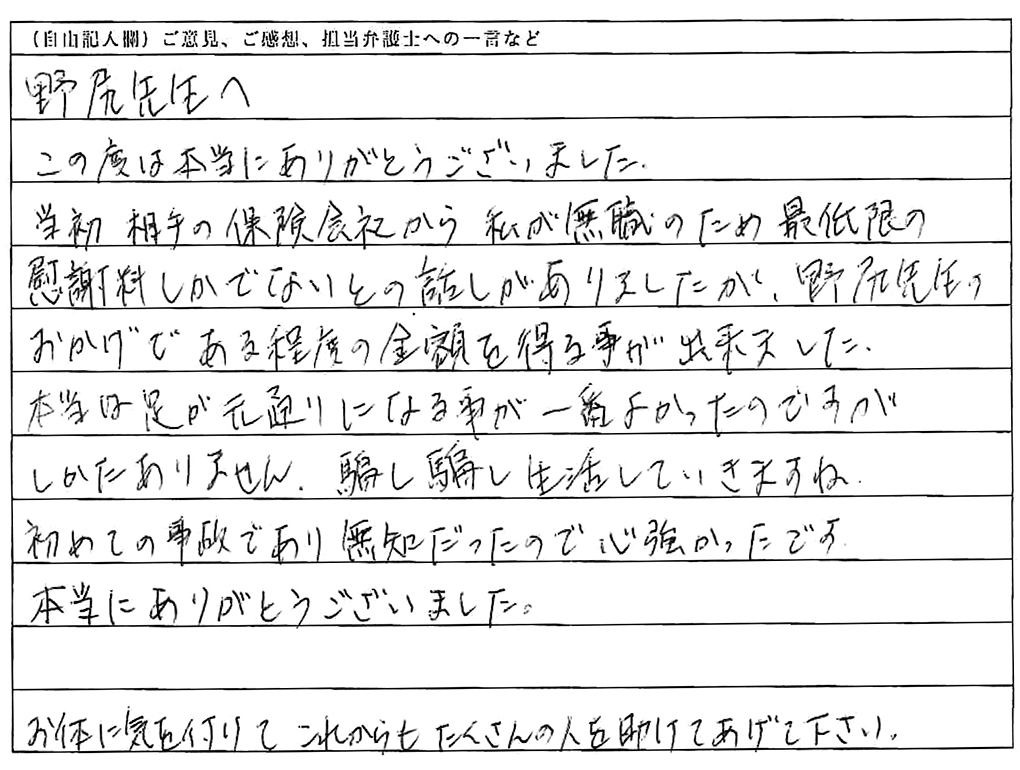 （自由記入欄）ご意見、ご感想、担当弁護士への一言など
野尻先生へ
この度は本当にありがとうございました.
当初 相手の保険会社から 私が無職のため最低限の
慰謝料しかでないとの話しがありましたが、野尻先生の
おかげである程度の金額を得る事が出来ました.
本当は足が元通りになる事が一番よかったのですが
しかたありません. 騙し騙し生活していきますね.
初めての事故であり無知だったので心強かったです.
本当にありがとうございました。
お体に気を付けて これからも たくさんの人を助けてあげて下さい.